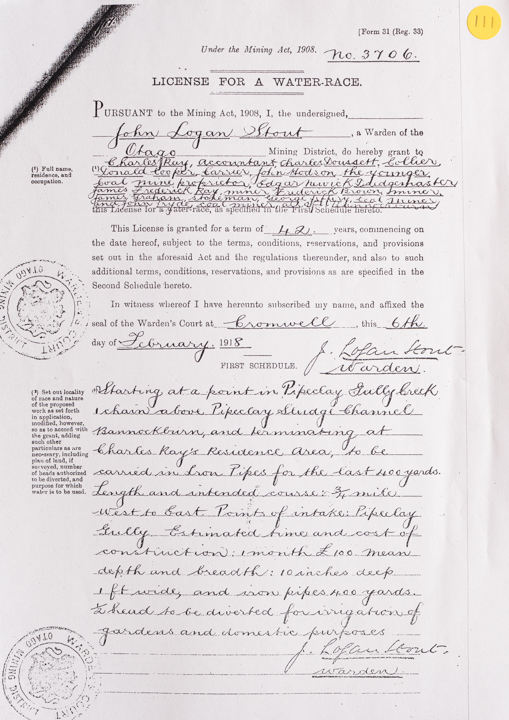 111
[Form 31 (Reg. 33)
Under the Mining Act, 1908. No. 3706.
LICENSE FOR A WATER-RACE.
PURSUANT to the Mining Act, 1908, I, the undersigned,
John Logan Stout, a Warden of the
Otago Mining District, do hereby grant to
(¹) Full name,
residence, and
occupation.
(¹) Charles Ray, accountant, Charles Doussett, Collier,
Donald Cooper, Carrier, John Hodson the younger,
coal mine proprietor, Edgar Dredgemaster
James Frederick Ray, miner, Frederick Brown, miner,
James Graham, George coal miner
coal miner, all of Bannockburn
this License for a water-race, as specified in the First Schedule hereto.
This License is granted for a term of 42 years, commencing
on the date hereof, subject to the terms, conditions, reservations, and provisions
set out in the aforesaid Act and the regulations thereunder, and also to such
additional terms, conditions, reservations, and provisions as are specified in the
Second Schedule hereto.
In witness whereof I have hereunto subscribed my name, and affixed the
seal of the Warden's Court at Cromwell, this 6th
day of February, 1918
J. Logan Stout.
Warden.
FIRST SCHEDULE.
(²) Set out locality
of race and nature
of the proposed
work as set forth
in application,
modified, however,
so as to accord with
the grant, adding
such other
particulars as are
necessary, including
plan of land, if
surveyed, number
of heads authorized
to be diverted, and
purpose for which
water is to be used.
(²) Starting at a point in Pipeclay Gully Creek
1 chain above Pipeclay Sludge Channel
Bannockburn, and terminating at
Charles Ray's Residence Area, to be
carried in Iron Pipes for the last 400 yards.
Length and intended course: ¾ mile
West to East. Points of intake: Pipeclay
Gully. Estimated time and cost of
construction: 1 month £100. Mean
depth and breadth: 10 inches deep
1 ft wide, and iron pipes 400 yards.
½ head to be diverted for irrigation of
gardens and domestic purposes
J. Logan Stout.
Warden
WARDEN'S COURT
OTAGO MINING
WARDEN'S COURT
OTAGO MINING